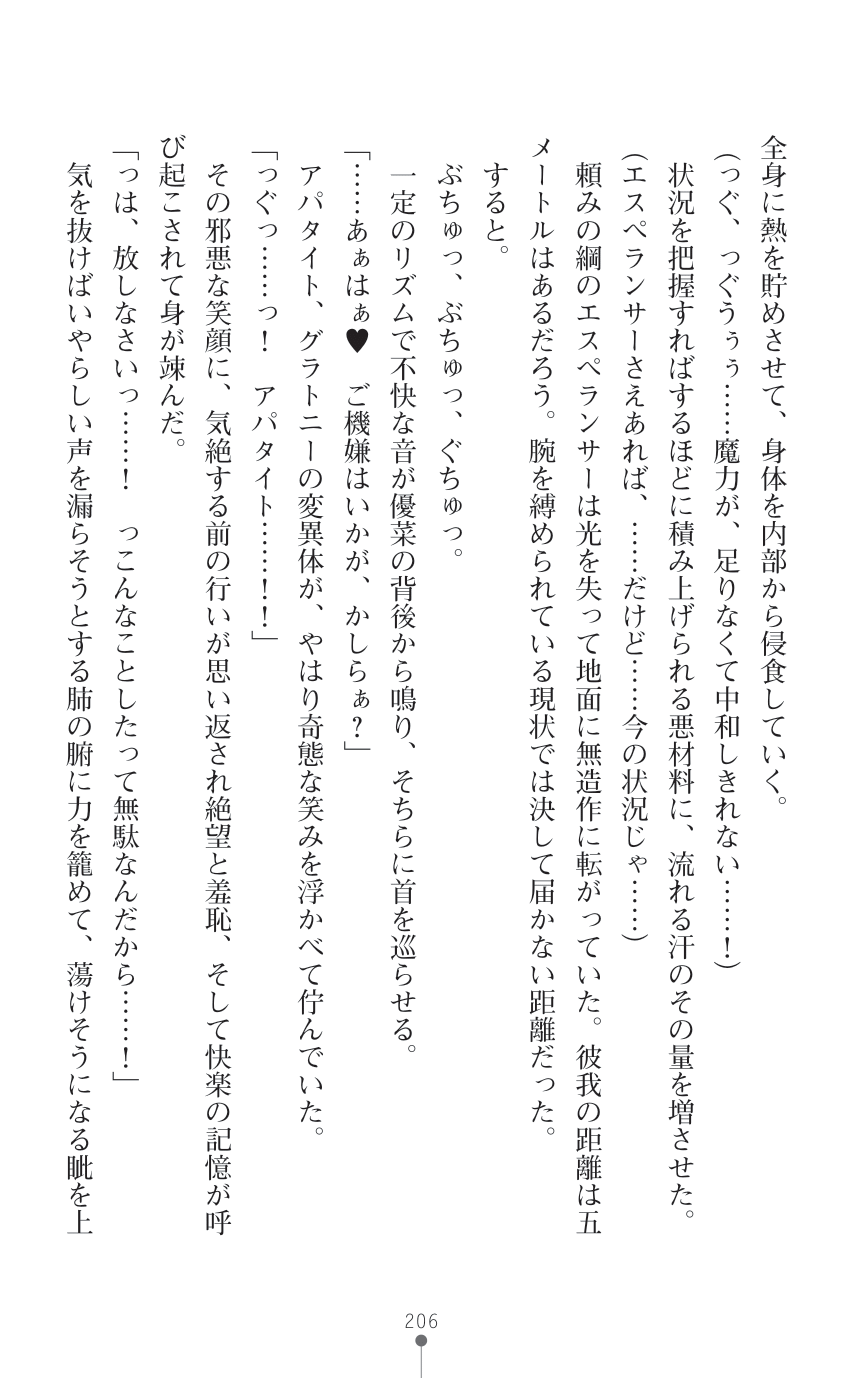 全身に熱を貯めさせて、身体を内部から侵食していく。
（っぐ、っぐうぅぅ……魔力が、足りなくて中和しきれない……！）
　状況を把握すればするほどに積み上げられる悪材料に、流れる汗のその量を増させた。
（エスペランサーさえあれば、……だけど……今の状況じゃ……）
　頼みの綱のエスペランサーは光を失って地面に無造作に転がっていた。彼我の距離は五
メートルはあるだろう。腕を縛められている現状では決して届かない距離だった。
　すると。
　ぶちゅっ、ぶちゅっ、ぐちゅっ。
　一定のリズムで不快な音が優菜の背後から鳴り、そちらに首を巡らせる。
「……あぁはぁ♥　ご機嫌はいかが、かしらぁ？」
　アパタイト、グラトニーの変異体が、やはり奇態な笑みを浮かべて佇んでいた。
「っぐっ……っ！　アパタイト……！！」
　その邪悪な笑顔に、気絶する前の行いが思い返され絶望と羞恥、そして快楽の記憶が呼
び起こされて身が竦んだ。
「っは、放しなさいっ……！　っこんなことしたって無駄なんだから……！」
　気を抜けばいやらしい声を漏らそうとする肺の腑に力を籠めて、蕩けそうになる眦を上
206